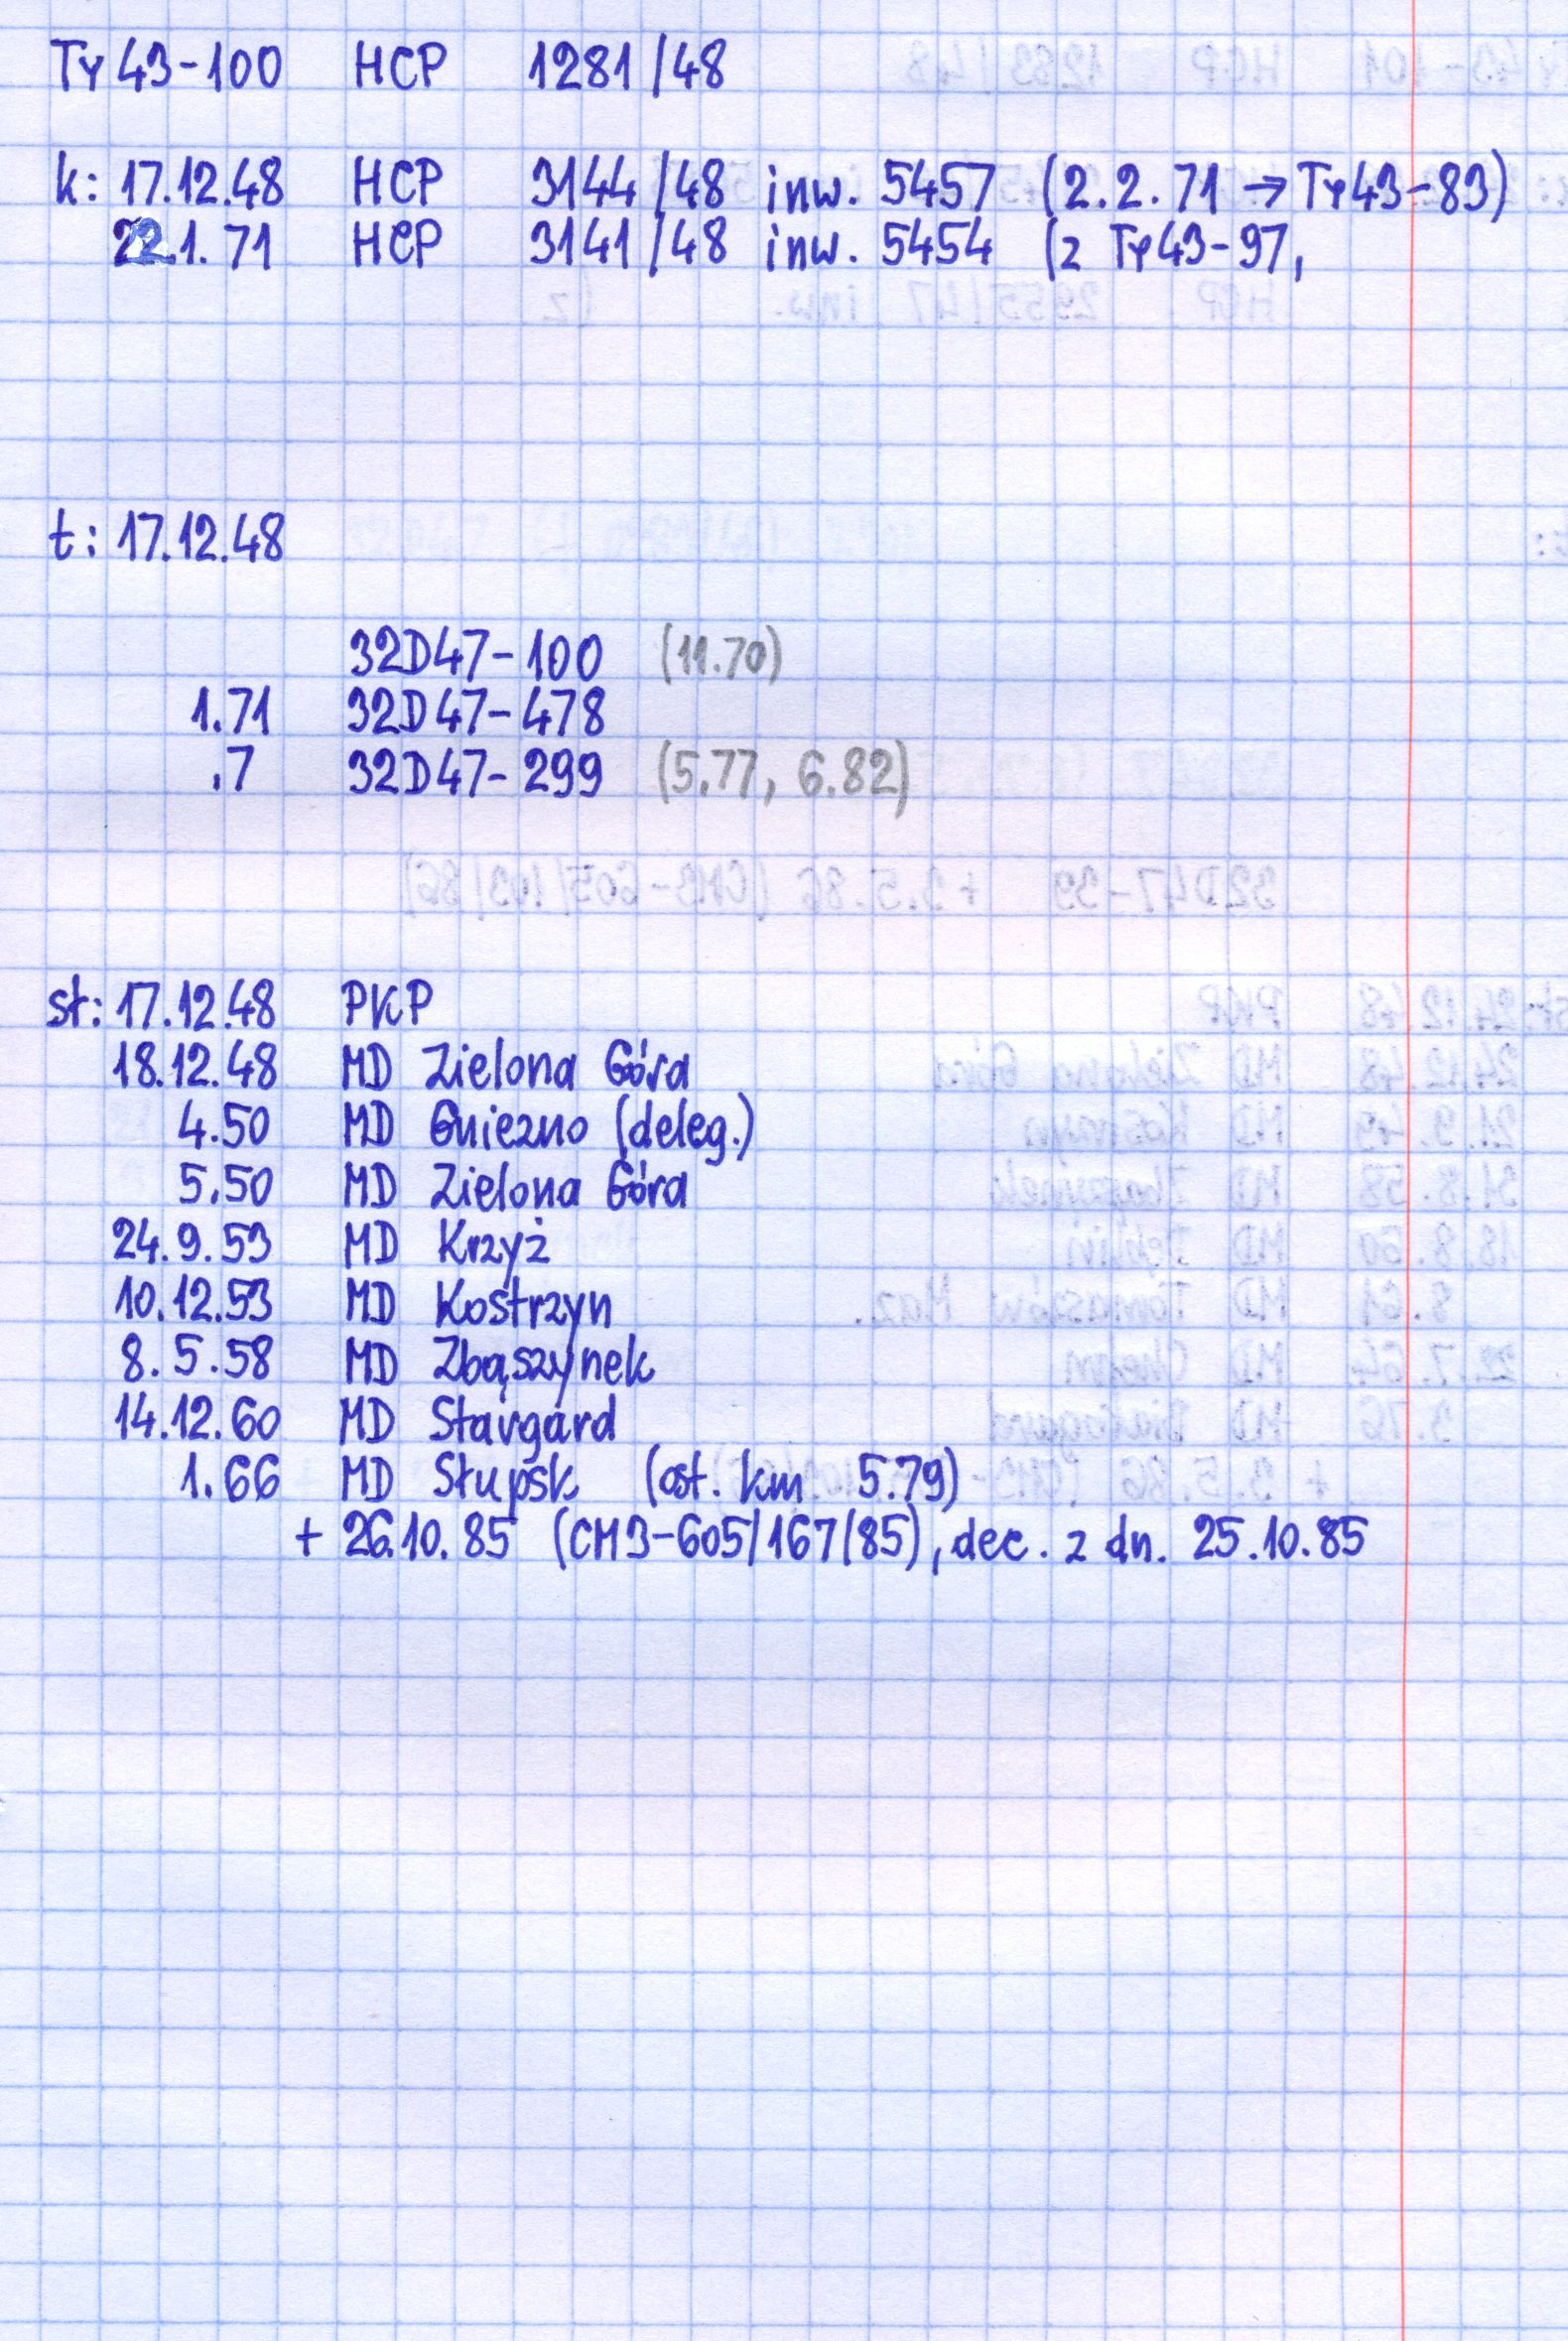 Ty43-100 HCP 1281/48
k: 17.12.48 HCP 3144/48 inw. 5457 (2.2.71 → Ty43-83)
22.1.71 HCP 3141/48 inw. 5454 (z Ty43-97,
t: 17.12.48
32D47-100 (11.70)
1.71 32D47-478
.7 32D47-299 (5.77, 6.82)
st: 17.12.48 PKP
18.12.48 MD Zielona Góra
4.50 MD Gniezno (deleg.)
5.50 MD Zielona Góra
24.9.53 MD Krzyż
10.12.53 MD Kostrzyn
8.5.58 MD Zbąszynek
14.12.60 MD Stargard
1.66 MD Słupsk (ost. km 5.79)
+ 26.10.85 (CM3-605/167/85), dec. z dn. 25.10.85